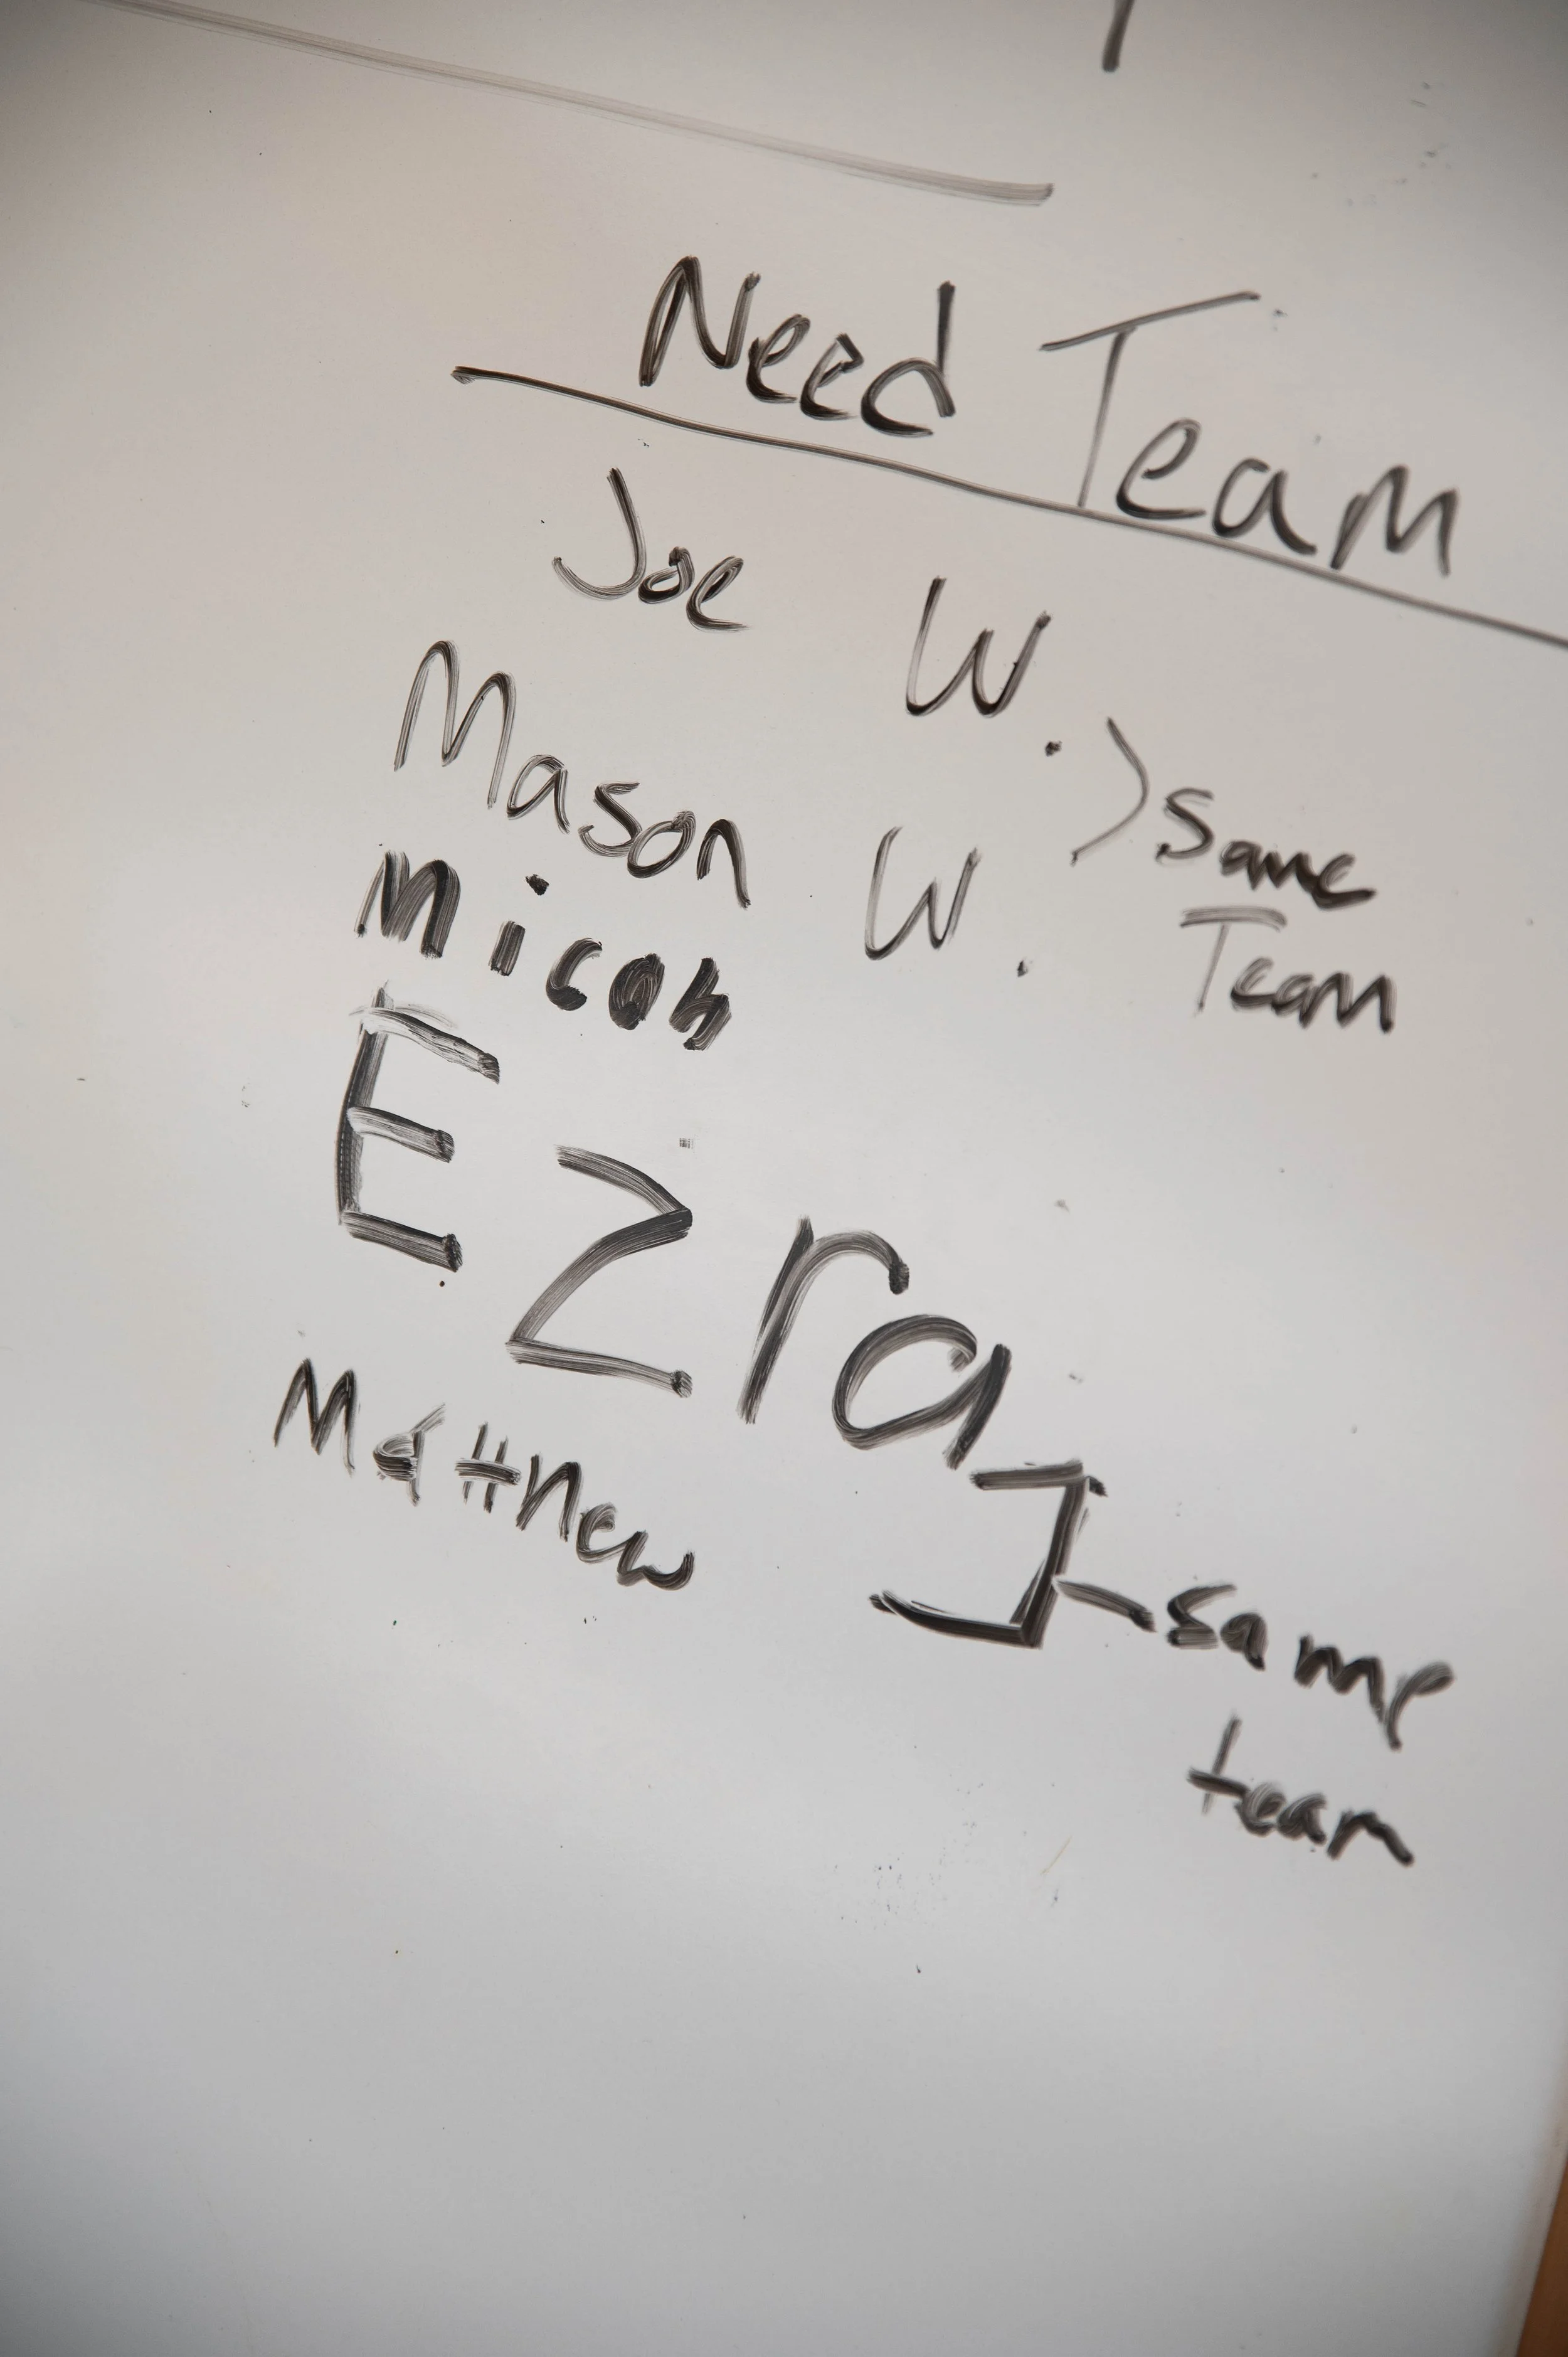 Need Team
Joe W.
Mason W.
Same
Team
Micah
Ezra
Matthew
same
team